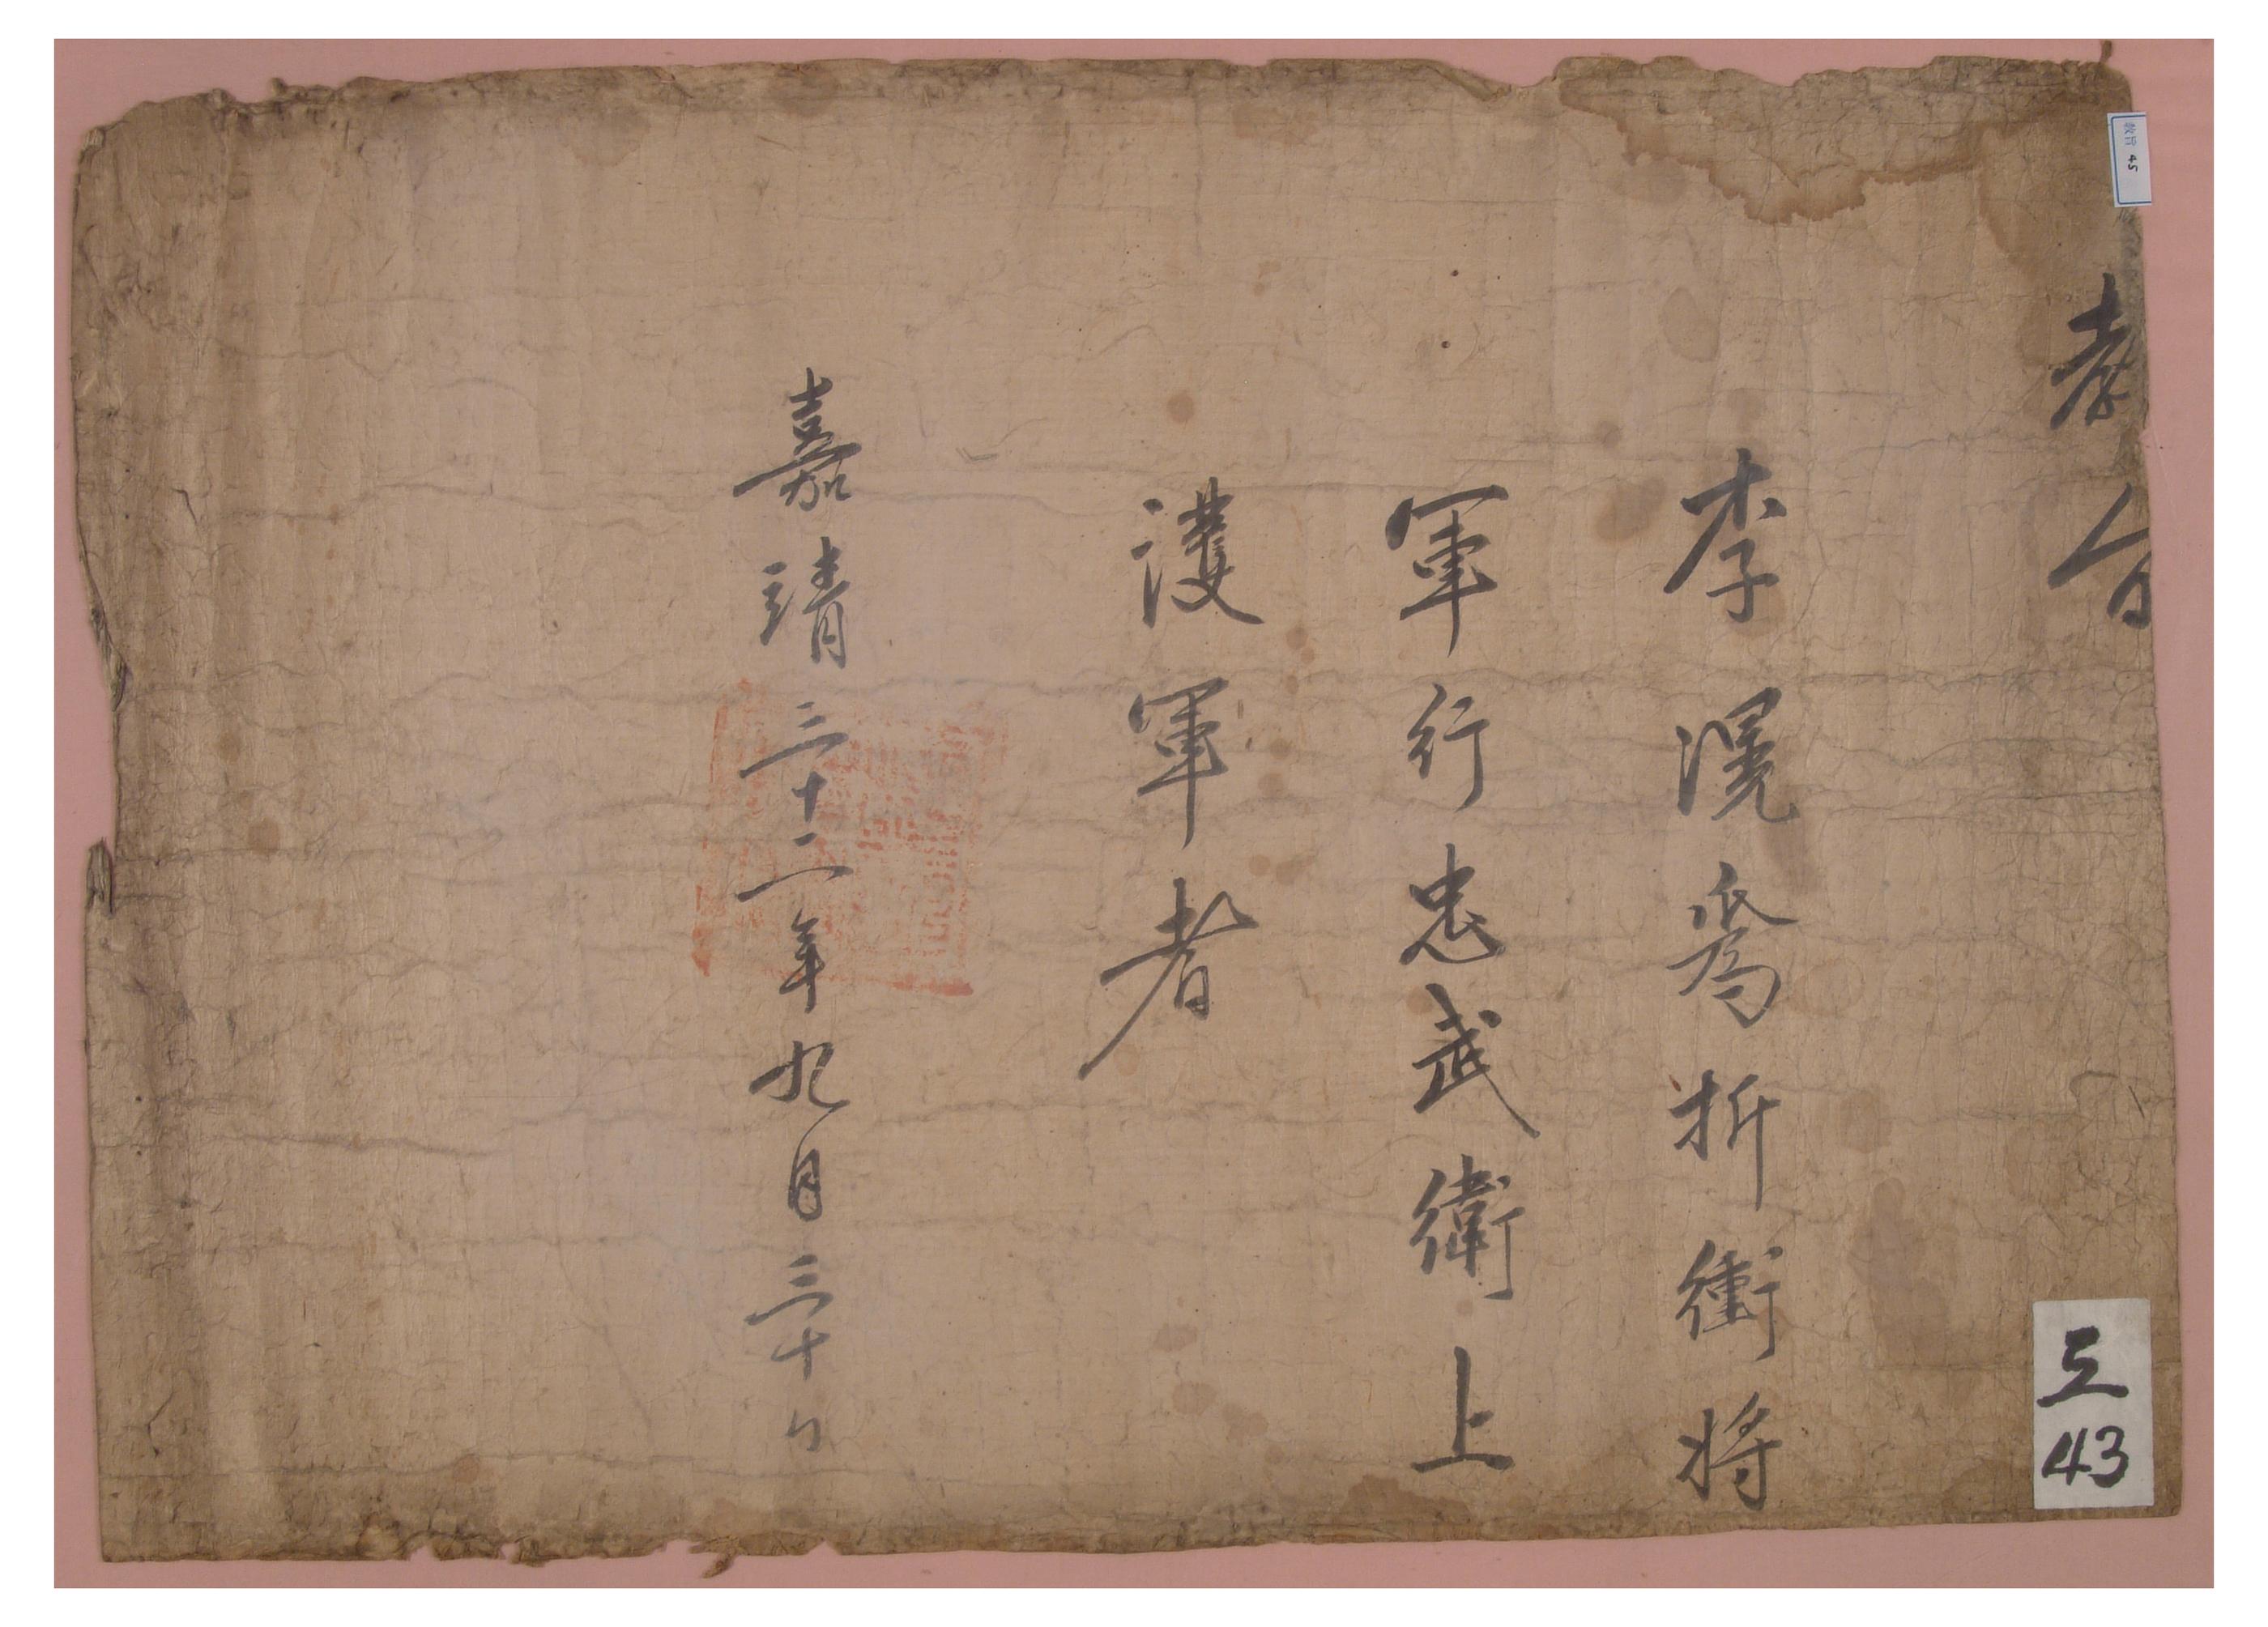 教旨
李滉爲折衝將
軍行忠武衛上
護軍者
嘉靖三十二年九月三十日
教旨 45
王
43